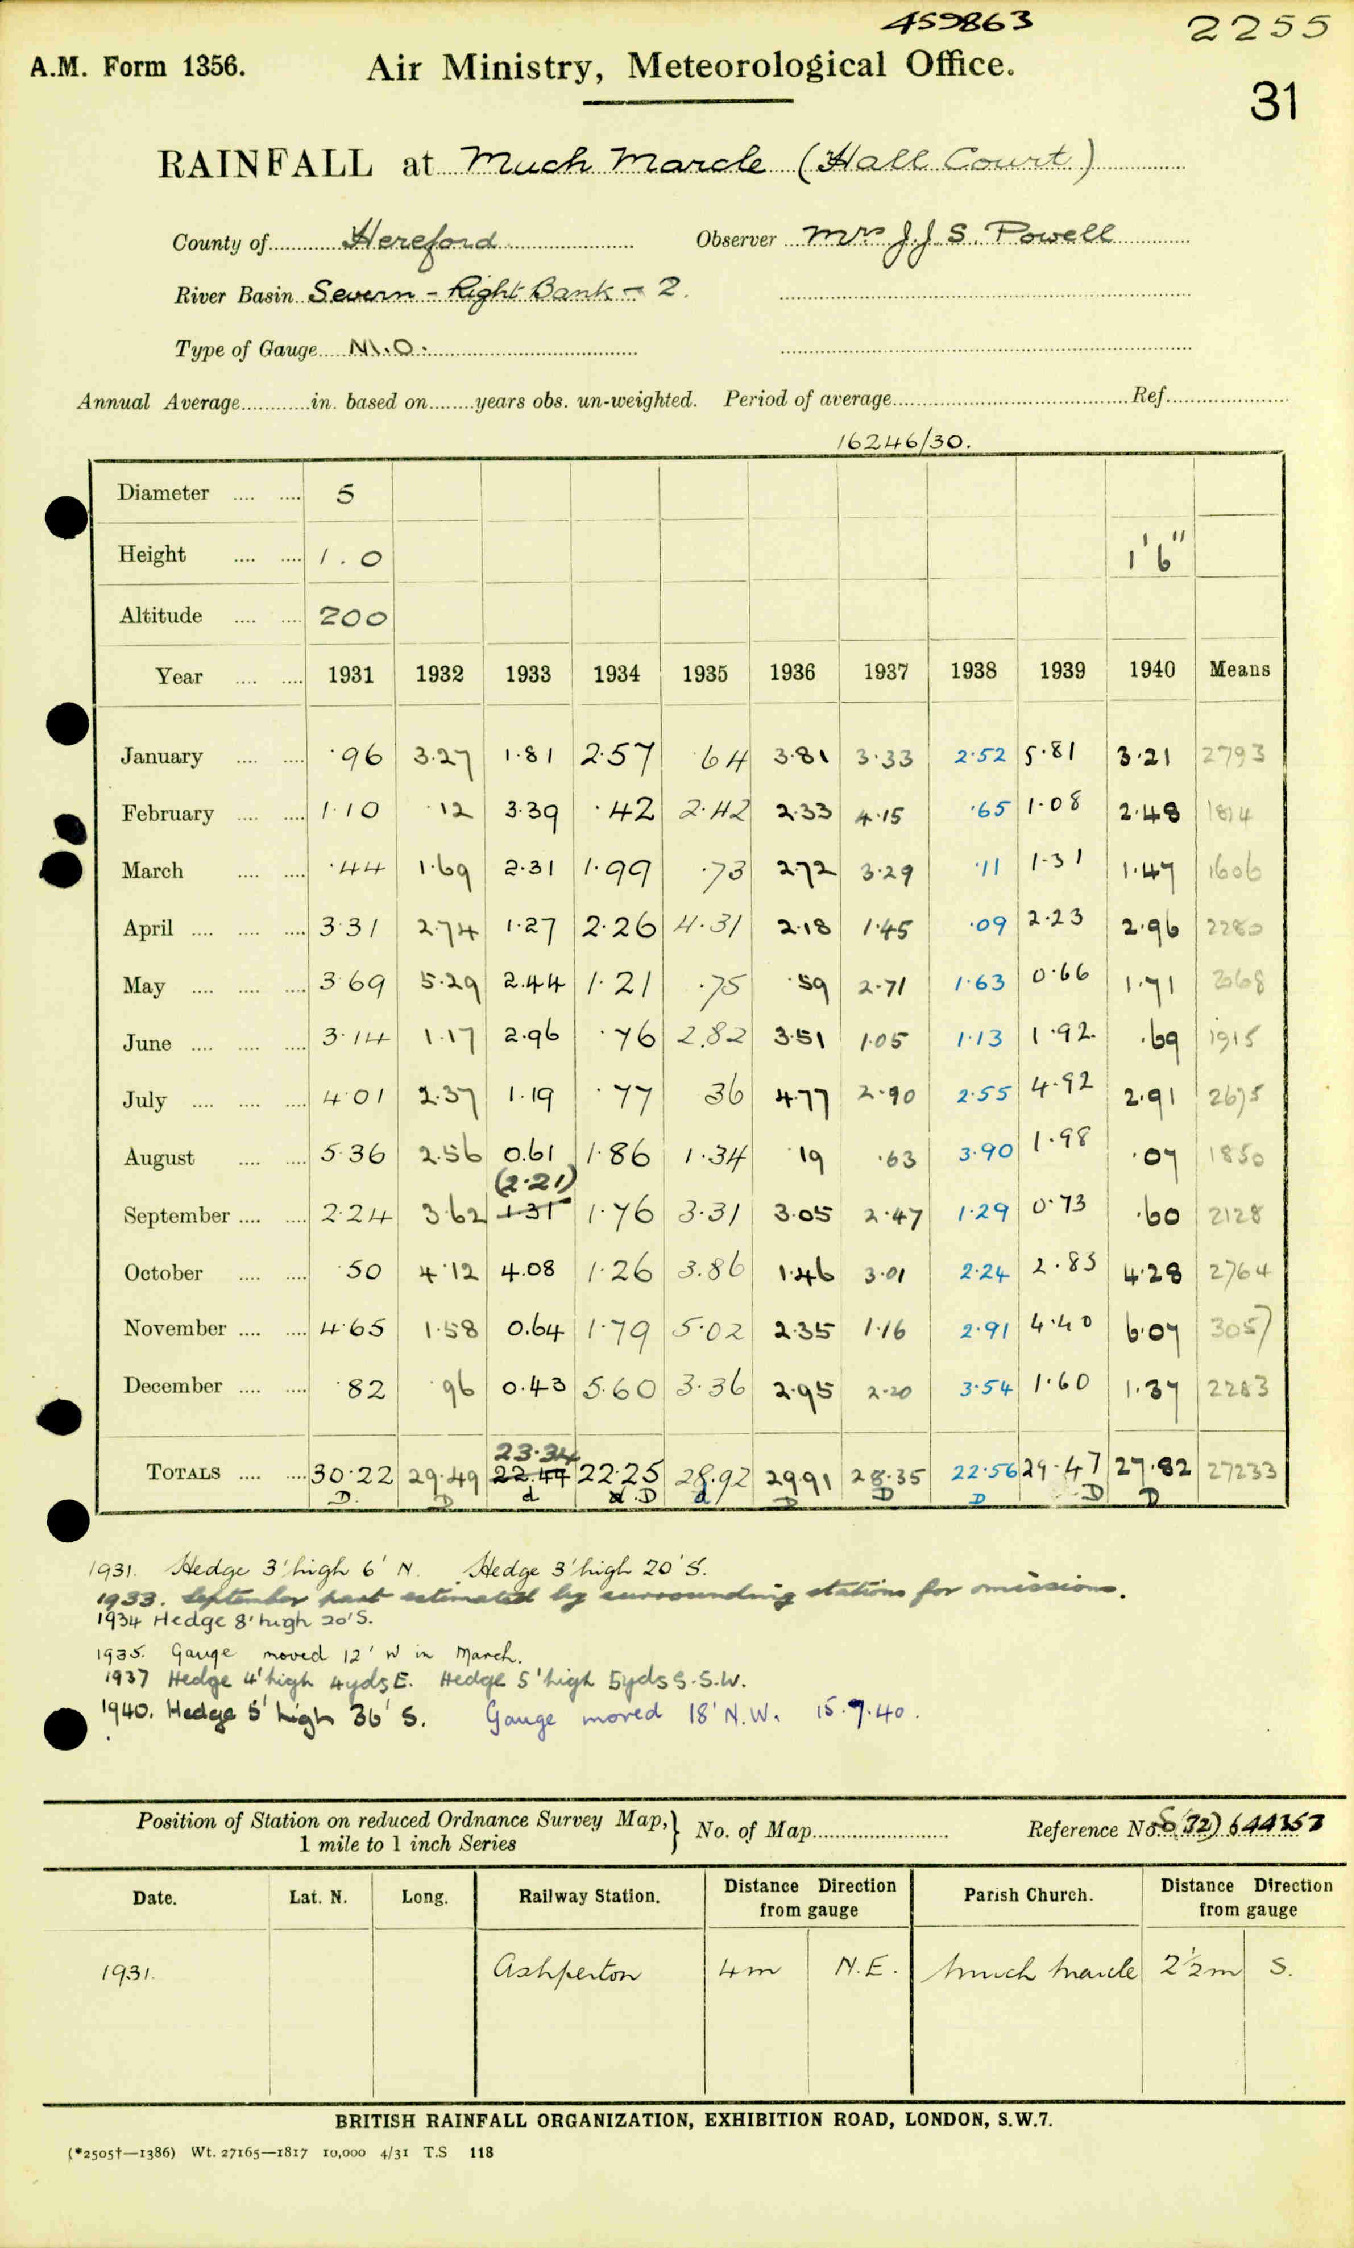 459863 2255
A.M. Form 1356. Air Ministry, Meteorological Office.
31
RAINFALL at Much Marcle (Hall Court)
County of Hereford Observer Mrs J.J.S. Powell
River Basin Severn - Right Bank - 2.
Type of Gauge M.O.
Annual Average in. based on years obs. un-weighted. Period of average Ref.
16246/30.
Diameter 5
Height 1.0 1'6"
Altitude 200
Year 1931 1932 1933 1934 1935 1936 1937 1938 1939 1940 Means
January ·96 3·27 1·81 2·57 ·64 3·81 3·33 2·52 5·81 3·21 2793
February 1·10 ·12 3·39 ·42 2·42 2·33 4·15 ·65 1·08 2·48 1814
March ·44 1·69 2·31 1·99 ·73 2·72 3·29 ·11 1·31 1·47 1606
April 3·31 2·74 1·27 2·26 4·31 2·18 1·45 ·09 2·23 2·96 2280
May 3·69 5·29 2·44 1·21 ·75 ·59 2·71 1·63 0·66 1·71 2068
June 3·14 1·17 2·96 ·76 2.82 3·51 1·05 1·13 1·92 ·69 1915
July 4·01 2·37 1·19 ·77 36 4·77 2·90 2·55 4·92 2·91 2675
August 5·36 2·56 0.61 1·86 1·34 19 ·63 3·90 1·98 ·07 1850
(2·21)
September 2·24 3·62 1·31 1·76 3·31 3·05 2·47 1·29 0·73 ·60 2128
October ·50 4·12 4.08 1·26 3·86 1·46 3·01 2·24 2·85 4·28 2764
November 4·65 1·58 0.64 1·79 5·02 2·35 1·16 2·91 4·40 6·07 3057
December ·82 ·96 0.43 5·60 3·36 2·95 2·20 3·54 1·60 1·37 2283
23·34
TOTALS 30·22 29·49 22·44 22·25 28.92 29·91 28·35 22·56 29·47 27·82 27233
D. D d D d D D D D D
1931. Hedge 3' high 6' N. Hedge 3' high 20' S.
1933. September part estimated by surrounding stations for omissions.
1934 Hedge 8' high 20' S.
1935. Gauge moved 12' W in March.
1937 Hedge 4' high 4yds E. Hedge 5' high 5yds S.S.W.
1940. Hedge 5' high 36' S. Gauge moved 18' N.W. 15.9.40.
Position of Station on reduced Ordnance Survey Map, 1 mile to 1 inch Series } No. of Map Reference No. (32) 644353
Date. Lat. N. Long. Railway Station. Distance Direction from gauge Parish Church. Distance Direction from gauge
1931. Ashperton 4m N.E. Much Marcle 2½m S.
BRITISH RAINFALL ORGANIZATION, EXHIBITION ROAD, LONDON, S.W.7.
(*2505†—1386) Wt. 27165—1817 10,000 4/31 T.S 118